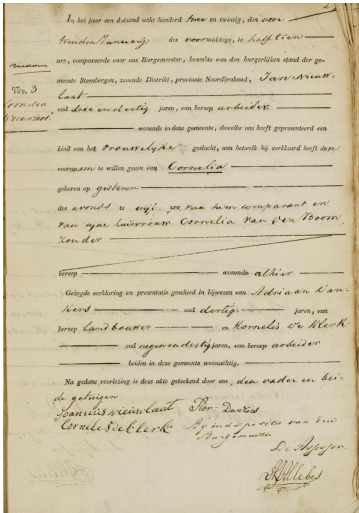 In het jaar een duizend acht honderd twee en twintig, den
des voormiddags, te half tien
ure, compareerde voor ons Burgemeester, beambte van den burgerlijken stand der ge-
meente Steenbergen, zevende Distrikt, provincie Noordbraband, Jan nieuw-
laat
oud drie en dertig jaren, van beroep arbeider
No. 3
Cornelia
wonende in deze gemeente, dewelke ons heeft gepresenteerd een
kind van het vrouwelyke geslacht, aan hetwelk hij verklaard heeft den
voornaam te willen geven van Cornelia
geboren op gisteren
des avonds te vijf ure van hem comparant en
van zyne huisvrouw Cornelia van den Boom
zonder
beroep wonende alhier
Gezegde verklaring en presentatie geschied in bijwezen van Adriaan Dan-
kers oud dertig jaren, van
beroep landbouwer en Kornelis de Klerk
oud negenendertig jaren, van beroep arbeider
beiden in deze gemeente woonachtig.
Na gedane voorlezing is deze akte geteekend door ons, den vader en bei-
de getuigen
Joannis nieuwlaat
Dankers
Cornelis de Clerk
By indispositie van den
Burgemeester
De Assessor